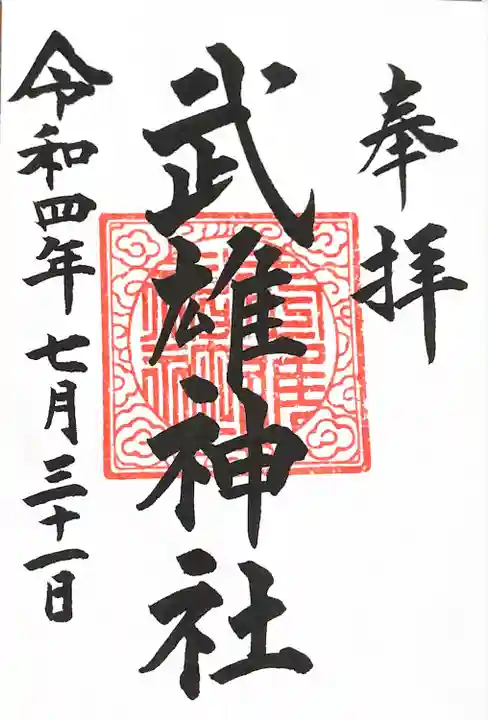 奉拝
武雄神社
令和四年七月三十一日